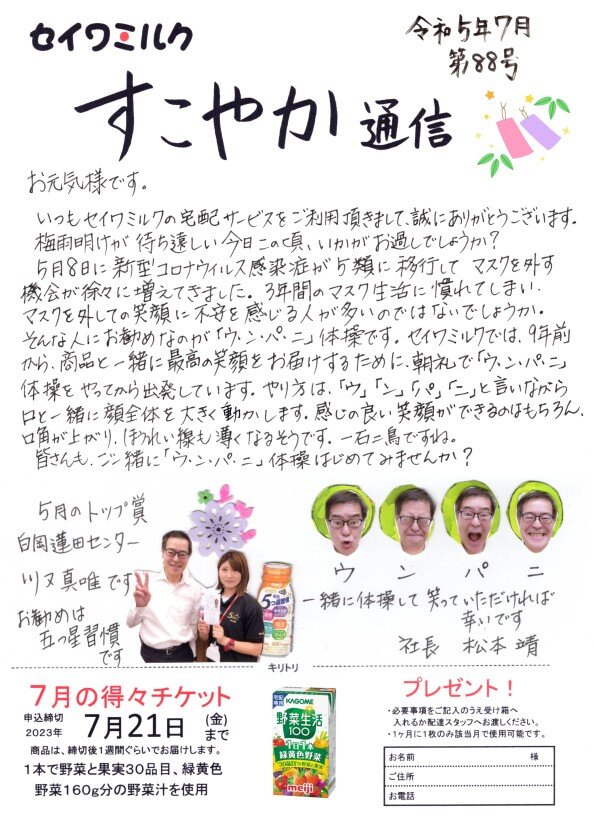 セイワミルク
令和5年7月
第88号
すこやか通信
お元気様です。
いつもセイワミルクの宅配サービスをご利用頂きまして、誠にありがとうございます。
梅雨明けが待ち遠しい今日この頃、いかがお過しでしょうか?
5月8日に新型コロナウィルス感染症が5類に移行してマスクを外す
機会が徐々に増えてきました。3年間のマスク生活に慣れてしまい、
マスクを外しての笑顔に不安を感じる人が多いのではないでしょうか。
そんな人にお勧めなのが「ウ・ン・パ・ニ」体操です。セイワミルクでは、9年前
から、商品と一緒に最高の笑顔をお届けするために、朝礼で「ウ・ン・パ・ニ」
体操をやってから出発しています。やり方は、「ウ」「ン」「パ」「ニ」と言いながら
口と一緒に顔全体を大きく動かします。感じの良い笑顔ができるのはもちろん、
口角が上がり、ほうれい線も薄くなるそうです。一石二鳥ですね。
皆さんも、ご一緒に「ウ・ン・パ・ニ」体操はじめてみませんか?
5月のトップ賞
白岡蓮田センター
川又真唯です
お勧めは
五つ星習慣
です
ウ ン パ ニ
一緒に体操して笑っていただければ
幸いです
社長 松本 靖
キリトリ
7月の得々チケット
申込締切
2023年 7月21日 (金)まで
商品は、締切後1週間ぐらいでお届けします。
1本で野菜と果実30品目、緑黄色
野菜160g分の野菜汁を使用
KAGOME
野菜生活
100
1日1本
緑黄色野菜
meiji
プレゼント!
・必要事項をご記入のうえ受け箱へ
入れるか配達スタッフへお渡しください。
・1ヶ月に1枚のみ該当月で使用可能です。
お名前 様
ご住所
お電話